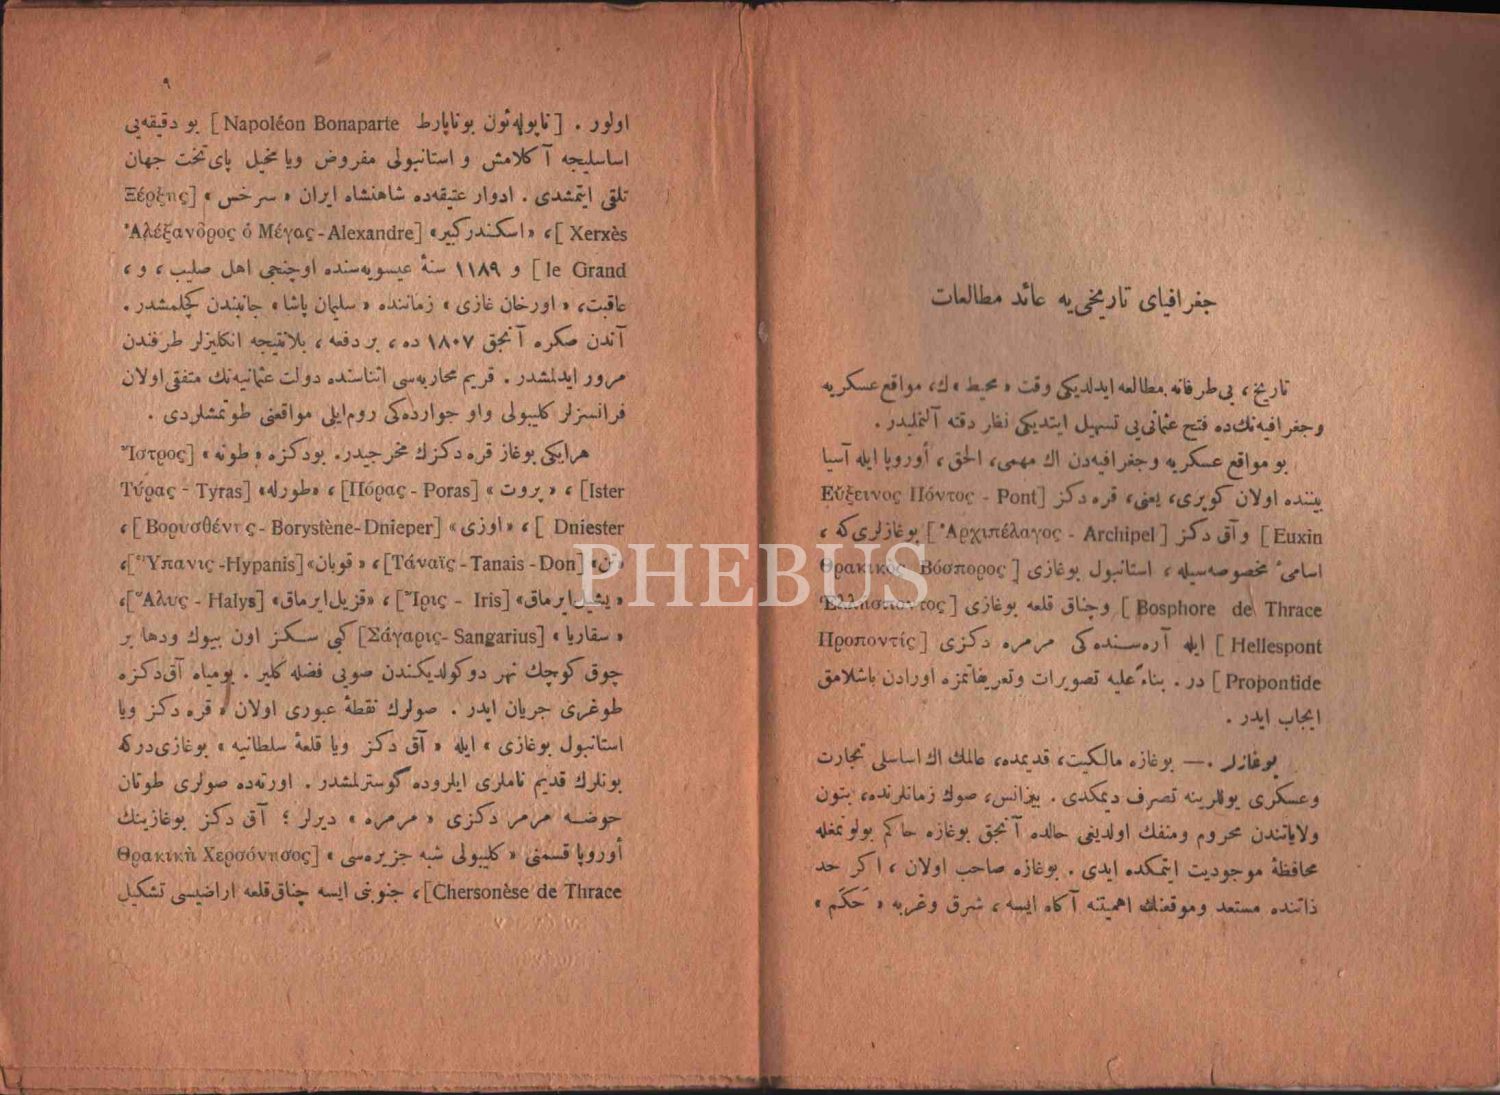 جغرافیای تاریخی‌یه عائد مطالعات
تاریخ، بی‌طرفانه مطالعه ایدلدیکی وقت « محیط » ك، مواقع عسکریه
وجغرافیه‌نك‌ده فتح عثمانی‌یی تسهیل ایتدیکی نظر دقته آلنملیدر.
بو مواقع عسکریه وجغرافیه‌دن اك مهمی، الحق، أوروپا ایله آسیا
بیننده اولان کوپری، یعنی، قره دکز [Εὔξεινος Πόντος - Pont
Euxin] وآق دکز [Ἀρχιπέλαγος - Archipel] بوغازلری‌که،
اسامیٔ مخصوصه‌سیله، استانبول بوغازی [Θρακικὸς Βόσπορος
Bosphore de Thrace] وچناق قلعه بوغازی [Ἑλλήσποντος
Hellespont] ایله آره‌سنده‌کی مرمره دکزی [Προποντίς
Propontide] در. بناءً علیه تصویرات وتعریفاتمزه اورادن باشلامق
ایجاب ایدر.
بوغازلر. — بوغازه مالکیت، قدیمده، عالمك اك اساسلی تجارت
وعسکری یوللرینه تصرف دیمکدی. بیزانس، صوك زمانلرنده، بتون
ولایاتندن محروم ومنفك اولدیغی حالده آنجق بوغازه حاکم بولونمغله
محافظهٔ موجودیت ایتمکده ایدی. بوغازه صاحب اولان، اکر حد
ذاتنده مستعد وموقعنك اهمیتنه آکاه ایسه، شرق وغربه « حَکَم »
٩
اولور. [ناپوله‌ئون بوناپارط Napoléon Bonaparte] بو دقیقه‌یی
اساسلیجه آکلامش و استانبولی مفروض ویا مخیل پای‌تخت جهان
تلقی ایتمشدی. ادوار عتیقه‌ده شاهنشاه ایران « سرخس » [Ξέρξης
Xerxès]، « اسکندرکبیر» [Ἀλέξανδρος ὁ Μέγας - Alexandre
le Grand] و ١١٨٩ سنهٔ عیسویه‌سنده اوچنجی اهل صلیب، و،
عاقبت، « اورخان غازی » زماننده « سلیمان پاشا » جانبندن کچلمشدر.
آندن صکره آنجق ١٨٠٧ ده، بر دفعه، بلانتیجه انکلیزلر طرفندن
مرور ایدلمشدر. قریم محاربه‌سی اثناسنده دولت عثمانیه‌نك متفقی اولان
فرانسزلر کلیبولی واو جوارده‌کی روم‌ایلی مواقعنی طوتمشلردی.
هرایکی بوغاز قره دکزك مخرجیدر. بودکزه « طونه » [Ἴστρος
Ister]، « پروت » [Πόρας - Poras]، «طورله» [Τύρας - Tyras
Dniester]، « اوزی » [Βορυσθένης - Borystène-Dnieper]،
«تن» [Τάναϊς - Tanais - Don]، « قوبان» [Ὕπανις -Hypanis]،
« یشیل‌ایرماق» [Ἴρις - Iris]، «قزیل‌ایرماق» [Ἅλυς - Halys]،
« سقاریا » [Σάγαρις- Sangarius] کبی سکز اون بیوك ودها بر
چوق کوچك نهر دوکولدیکندن صویی فضله کلیر. بومیاه آق‌دکزه
طوغری جریان ایدر. صولرك نقطهٔ عبوری اولان « قره دکز ویا
استانبول بوغازی » ایله « آق دکز ویا قلعهٔ سلطانیه » بوغازی‌درکه
بونلرك قدیم ناملری ایلروده گوسترلمشدر. اورته‌ده صولری طوتان
حوضه مرمر دکزی « مرمره » دیرلر؛ آق دکز بوغازینك
أوروپا قسمنی « کلیبولی شبه جزیره‌سی » [Θρακικὴ Χερσόνησος
Chersonèse de Thrace]، جنوبنی ایسه چناق‌قلعه اراضیسی تشکیل
PHEBUS